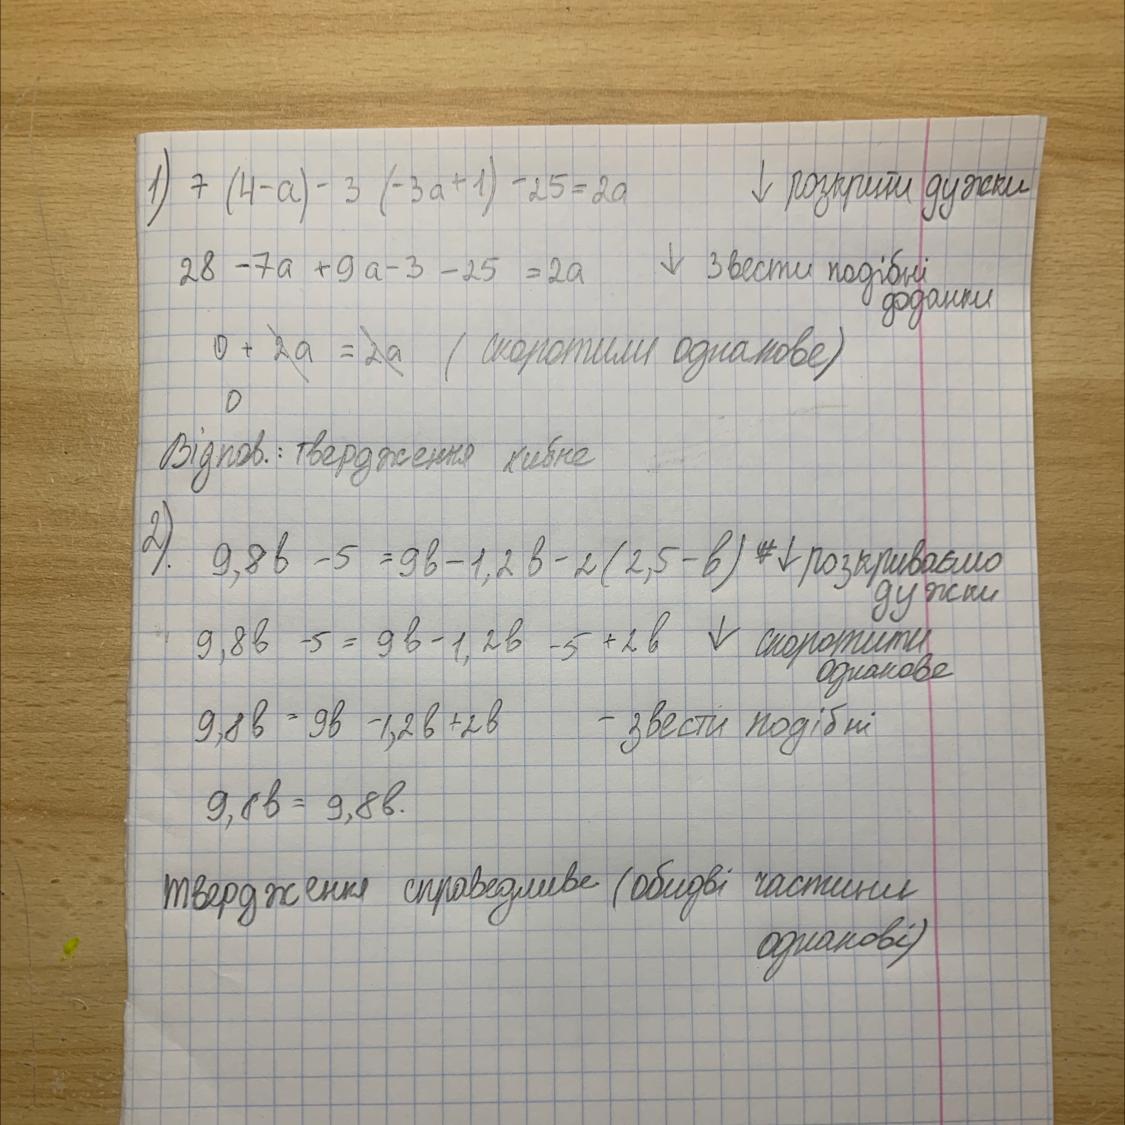 1) 7 (4-a) - 3 (-3a+1) - 25 = 2a ↓ розкрити дужки
28 - 7a + 9a - 3 - 25 = 2a ↓ Звести подібні
доданки
0 + 2a = 2a ( скоротили однакове)
0
Відпов.: твердження хибне
2).
9,8в - 5 = 9в - 1,2в - 2 (2,5 - в) ↓ розкриваємо
дужки
9,8в - 5 = 9в - 1,2в - 5 + 2в ↓ скоротити
однакове
9,8в = 9в - 1,2в + 2в - звести подібні
9,8в = 9,8в.
твердження справедливе (обидві частини
однакові)